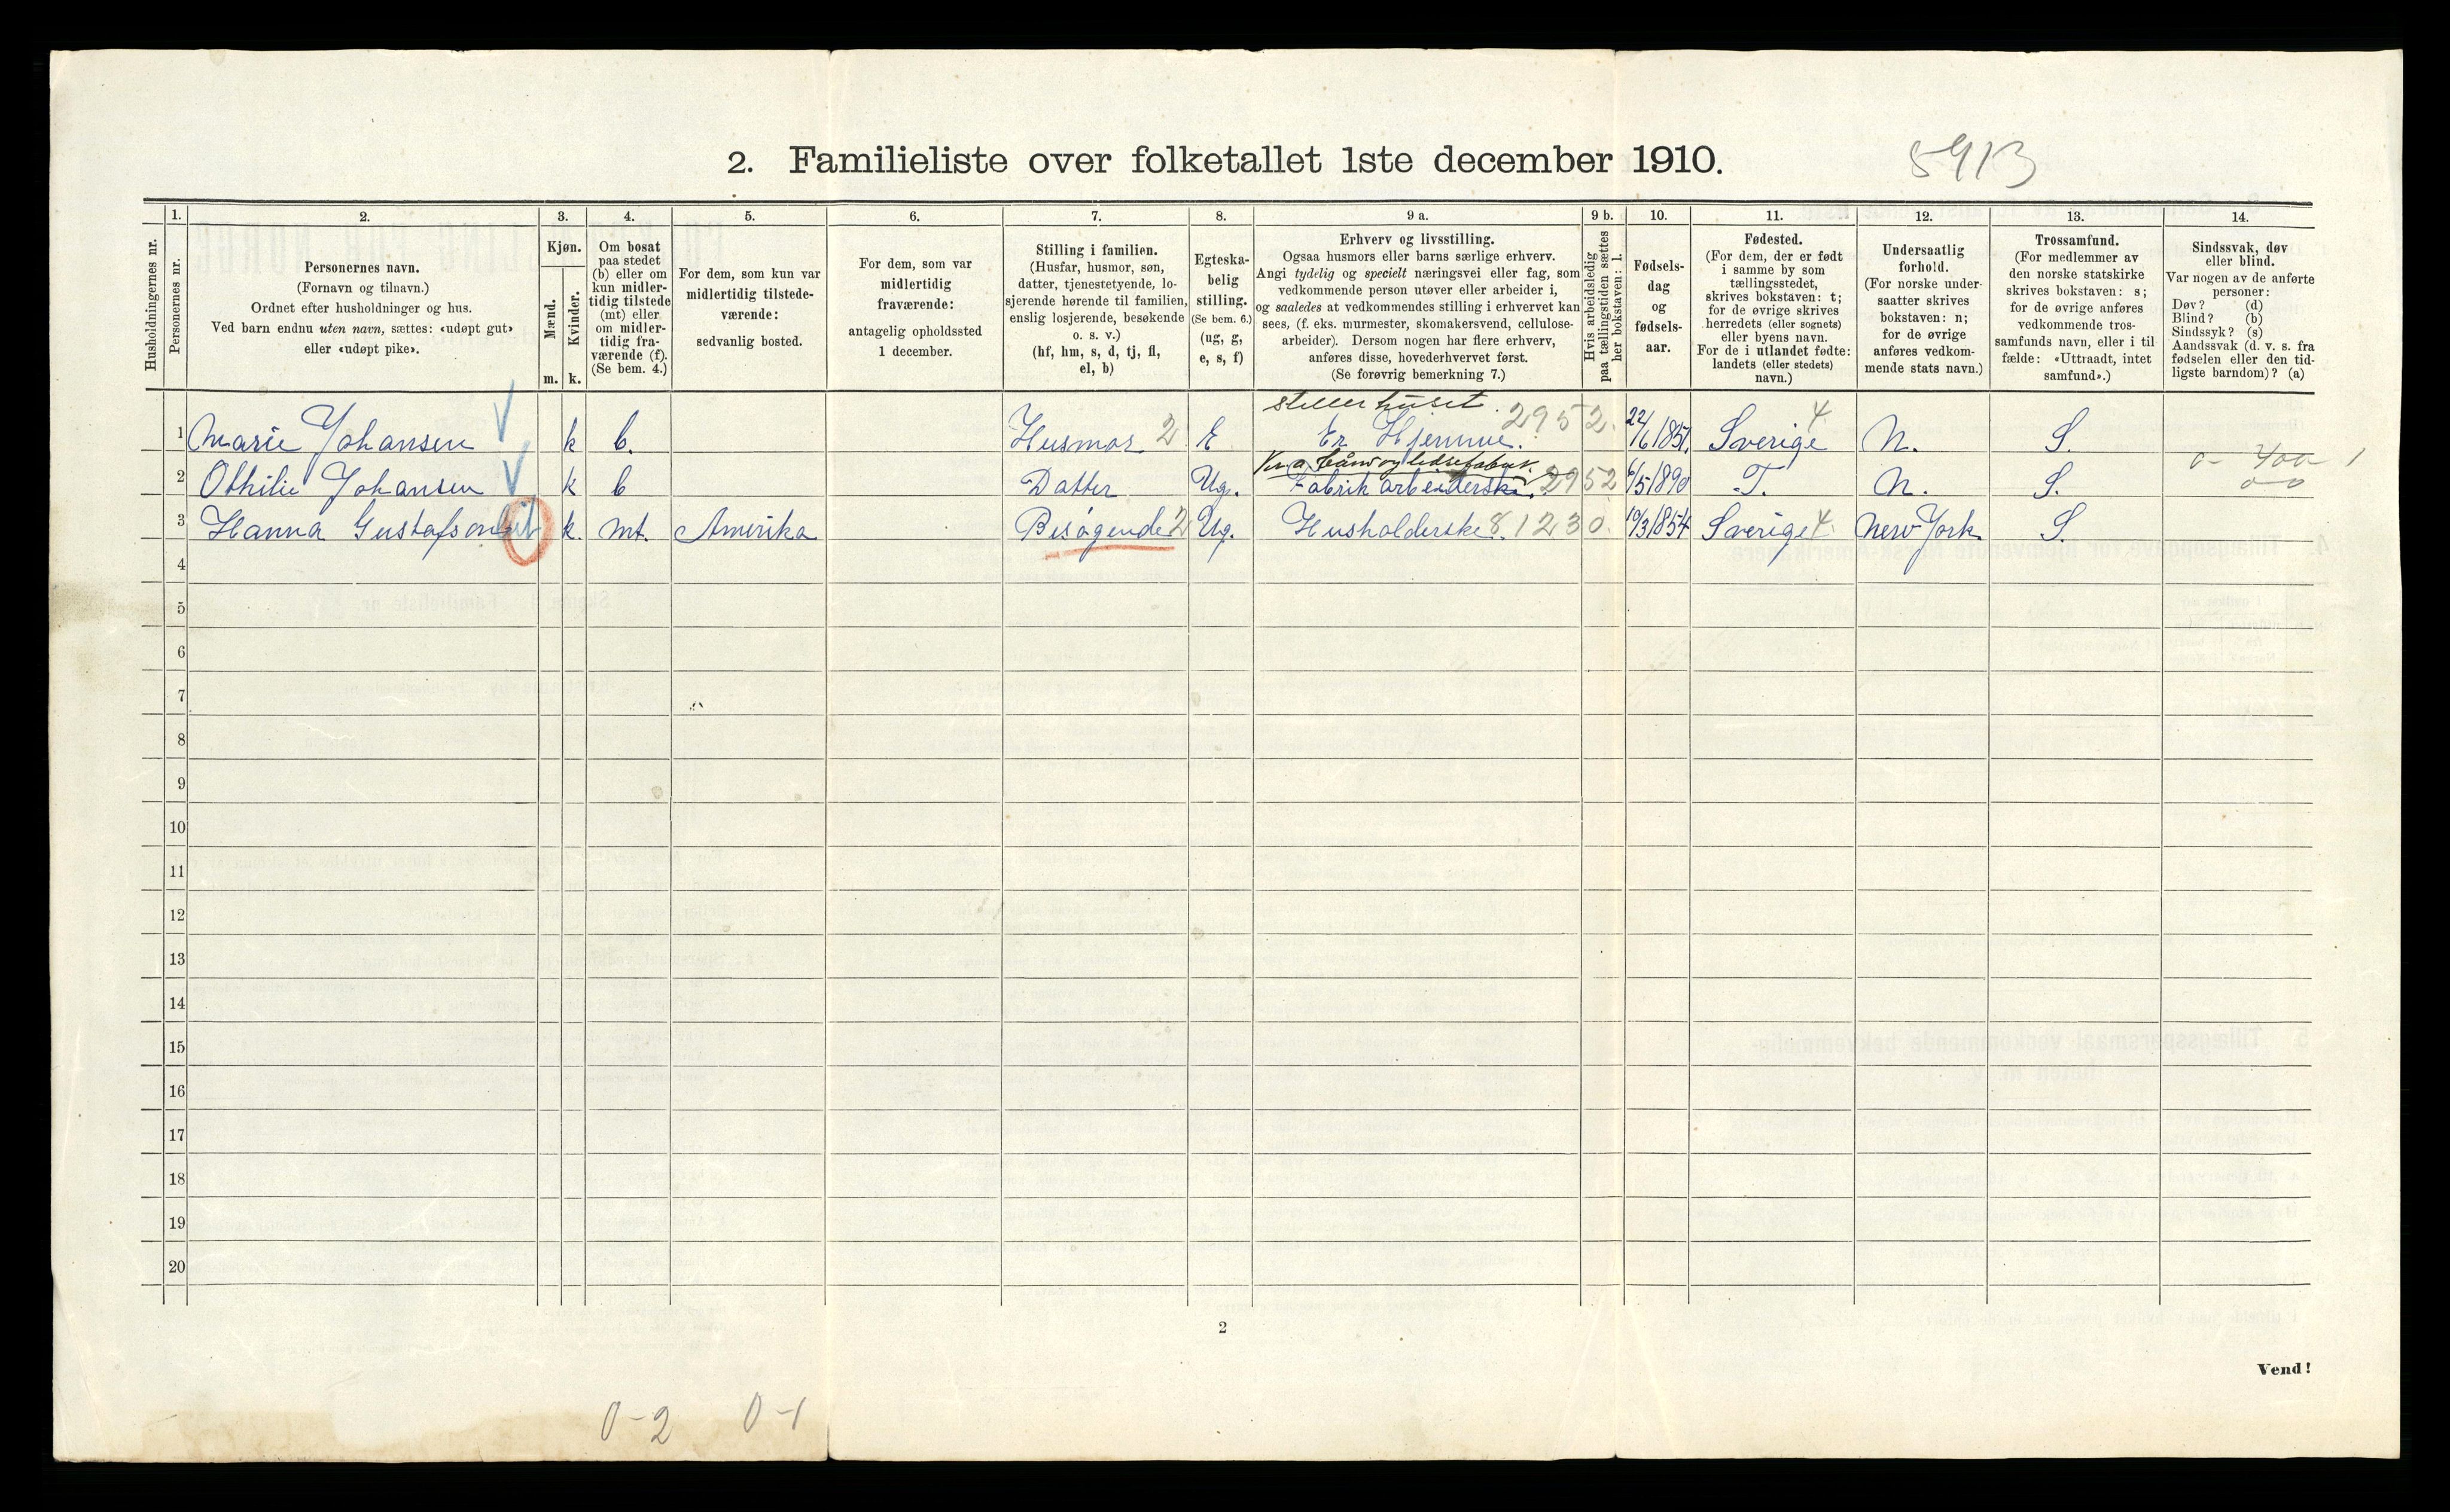 2. Familieliste over folketallet 1ste december 1910.
5913
Husholdningernes nr.
1.
Personernes nr.
2.
Personernes navn.
(Fornavn og tilnavn.)
Ordnet efter husholdninger og hus.
Ved barn endnu uten navn, sættes: «udøpt gut»
eller «udøpt pike».
3.
Kjøn.
Mænd.
Kvinder.
m. k.
4.
Om bosat
paa stedet
(b) eller om
kun midler-
tidig tilstede
(mt) eller
om midler-
tidig fra-
værende (f).
(Se bem. 4.)
5.
For dem, som kun var
midlertidig tilstede-
værende:
sedvanlig bosted.
6.
For dem, som var
midlertidig
fraværende:
antagelig opholdssted
1 december.
7.
Stilling i familien.
(Husfar, husmor, søn,
datter, tjenestetyende, lo-
sjerende hørende til familien,
enslig losjerende, besøkende
o. s. v.)
(hf, hm, s, d, tj, fl,
el, b)
8.
Egteska-
belig
stilling.
(Se bem. 6.)
(ug, g,
e, s, f)
9 a.
Erhverv og livsstilling.
Ogsaa husmors eller barns særlige erhverv.
Angi tydelig og specielt næringsvei eller fag, som
vedkommende person utøver eller arbeider i,
og saaledes at vedkommendes stilling i erhvervet kan
sees, (f. eks. murmester, skomakersvend, cellulose-
arbeider). Dersom nogen har flere erhverv,
anføres disse, hovederhvervet først.
(Se forøvrig bemerkning 7.)
9 b.
Hvis arbeidsledig
paa tællingstiden sættes
her bokstaven: l.
10.
Fødsels-
dag
og
fødsels-
aar.
11.
Fødested.
(For dem, der er født
i samme by som
tællingsstedet,
skrives bokstaven: t;
for de øvrige skrives
herredets (eller sognets)
eller byens navn.
For de i utlandet fødte:
landets (eller stedets)
navn.)
12.
Undersaatlig
forhold.
(For norske under-
saatter skrives
bokstaven: n;
for de øvrige
anføres vedkom-
mende stats navn.)
13.
Trossamfund.
(For medlemmer av
den norske statskirke
skrives bokstaven: s;
for de øvrige anføres
vedkommende tros-
samfunds navn, eller i til-
fælde: «Uttraadt, intet
samfund».)
14.
Sindssvak, døv
eller blind.
Var nogen av de anførte
personer:
Døv? (d)
Blind? (b)
Sindssyk? (s)
Aandssvak (d. v. s. fra
fødselen eller den tid-
ligste barndom)? (a)
steller huset.
1 Marie Johansen k b. Husmor 2 E Er Hjemme. 2952. 22/6 1851. Sverige 4. N. S.
2 Othilie Johansen k b Datter Ug. Fabrik arbeiderske. 2952 6/5 1890 T. N. S.
3 Hanna Gustafson k. mt. Amerika Besøgende 2 Ug. Husholderske. 81230. 10/3 1854 Sverige 4. New York S.
4
5
6
7
8
9
10
11
12
13
14
15
16
17
18
19
20
2
Vend!
0-2 0-1